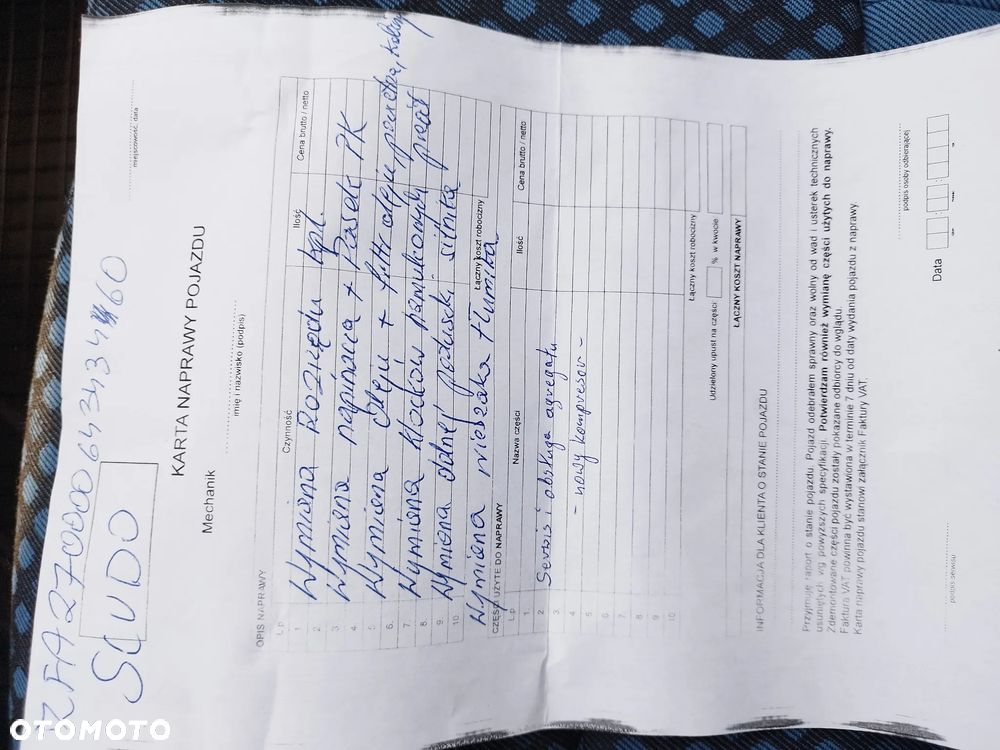 ZFA27000064343460
SCUDO
miejscowość, data
KARTA NAPRAWY POJAZDU
Mechanik
imię i nazwisko (podpis)
OPIS NAPRAWY
L.p. Czynność Ilość Cena brutto / netto
1 Wymiana Rozrządu kpl.
2 Wymiana napinacza + Pasek PK
3
4 Wymiana oleju + filtr oleju, powietrza,
5
6. Wymiana klocków hamulcowych przód
7
8. Wymiana dolnej poduszki silnika
9.
10 Łączny koszt robocizny
Wymiana wieszaka tłumika
CZĘŚCI UŻYTE DO NAPRAWY
L.p. Nazwa części Ilość Cena brutto / netto
1.
2 Serwis i obsługa agregatu
3
4 - nowy kompresor -
5
6
7
8
9
10 Łączny koszt robocizny
Udzielony upust na części % w kwocie
ŁĄCZNY KOSZT NAPRAWY
INFORMACJA DLA KLIENTA O STANIE POJAZDU
Przyjmuję raport o stanie pojazdu. Pojazd odebrałem sprawny oraz wolny od wad i usterek technicznych
usuniętych wg powyższych specyfikacji. Potwierdzam również wymianę części użytych do naprawy.
Zdemontowane części pojazdu zostały pokazane odbiorcy do wglądu.
Faktura VAT powinna być wystawiona w terminie 7 dniu od daty wydania pojazdu z naprawy
Karta naprawy pojazdu stanowi załącznik Faktury VAT.
podpis osoby odbierającej
Data
podpis serwisu
OTOMOTO